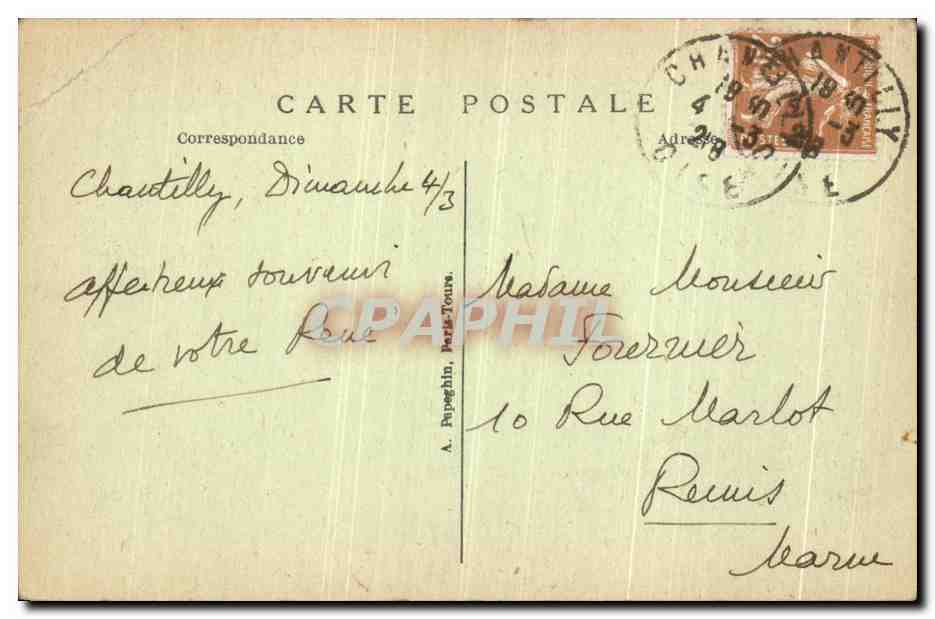 CARTE POSTALE
Correspondance
Adresse
CHANTILLY
18 45
4 -3
28
OISE
CHANTILLY
18 45
-3
28
OISE
POSTES
Chantilly, Dimanche 4/3
affectueux souvenir
de votre René
A. Papeghin, Paris-Tours.
CPAPHIL
Madame Monsieur
Fournier
10 Rue Marlot
Reims
Marne